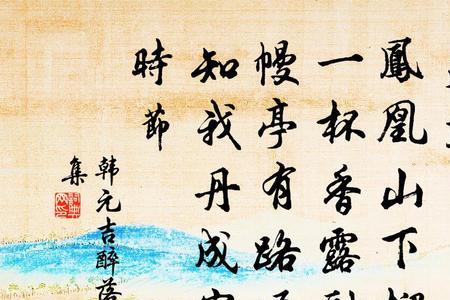 鳳凰山下
一杯香露
幔亭有路
知我丹成
時節
韩元吉醉落
集